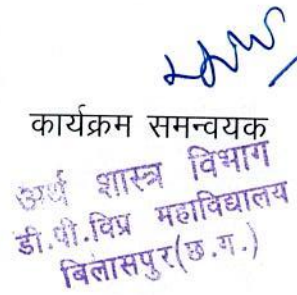 कार्यक्रम समन्वयक
अर्थ शास्त्र विभाग
डी.पी.विप्र महाविद्यालय
बिलासपुर(छ.ग.)